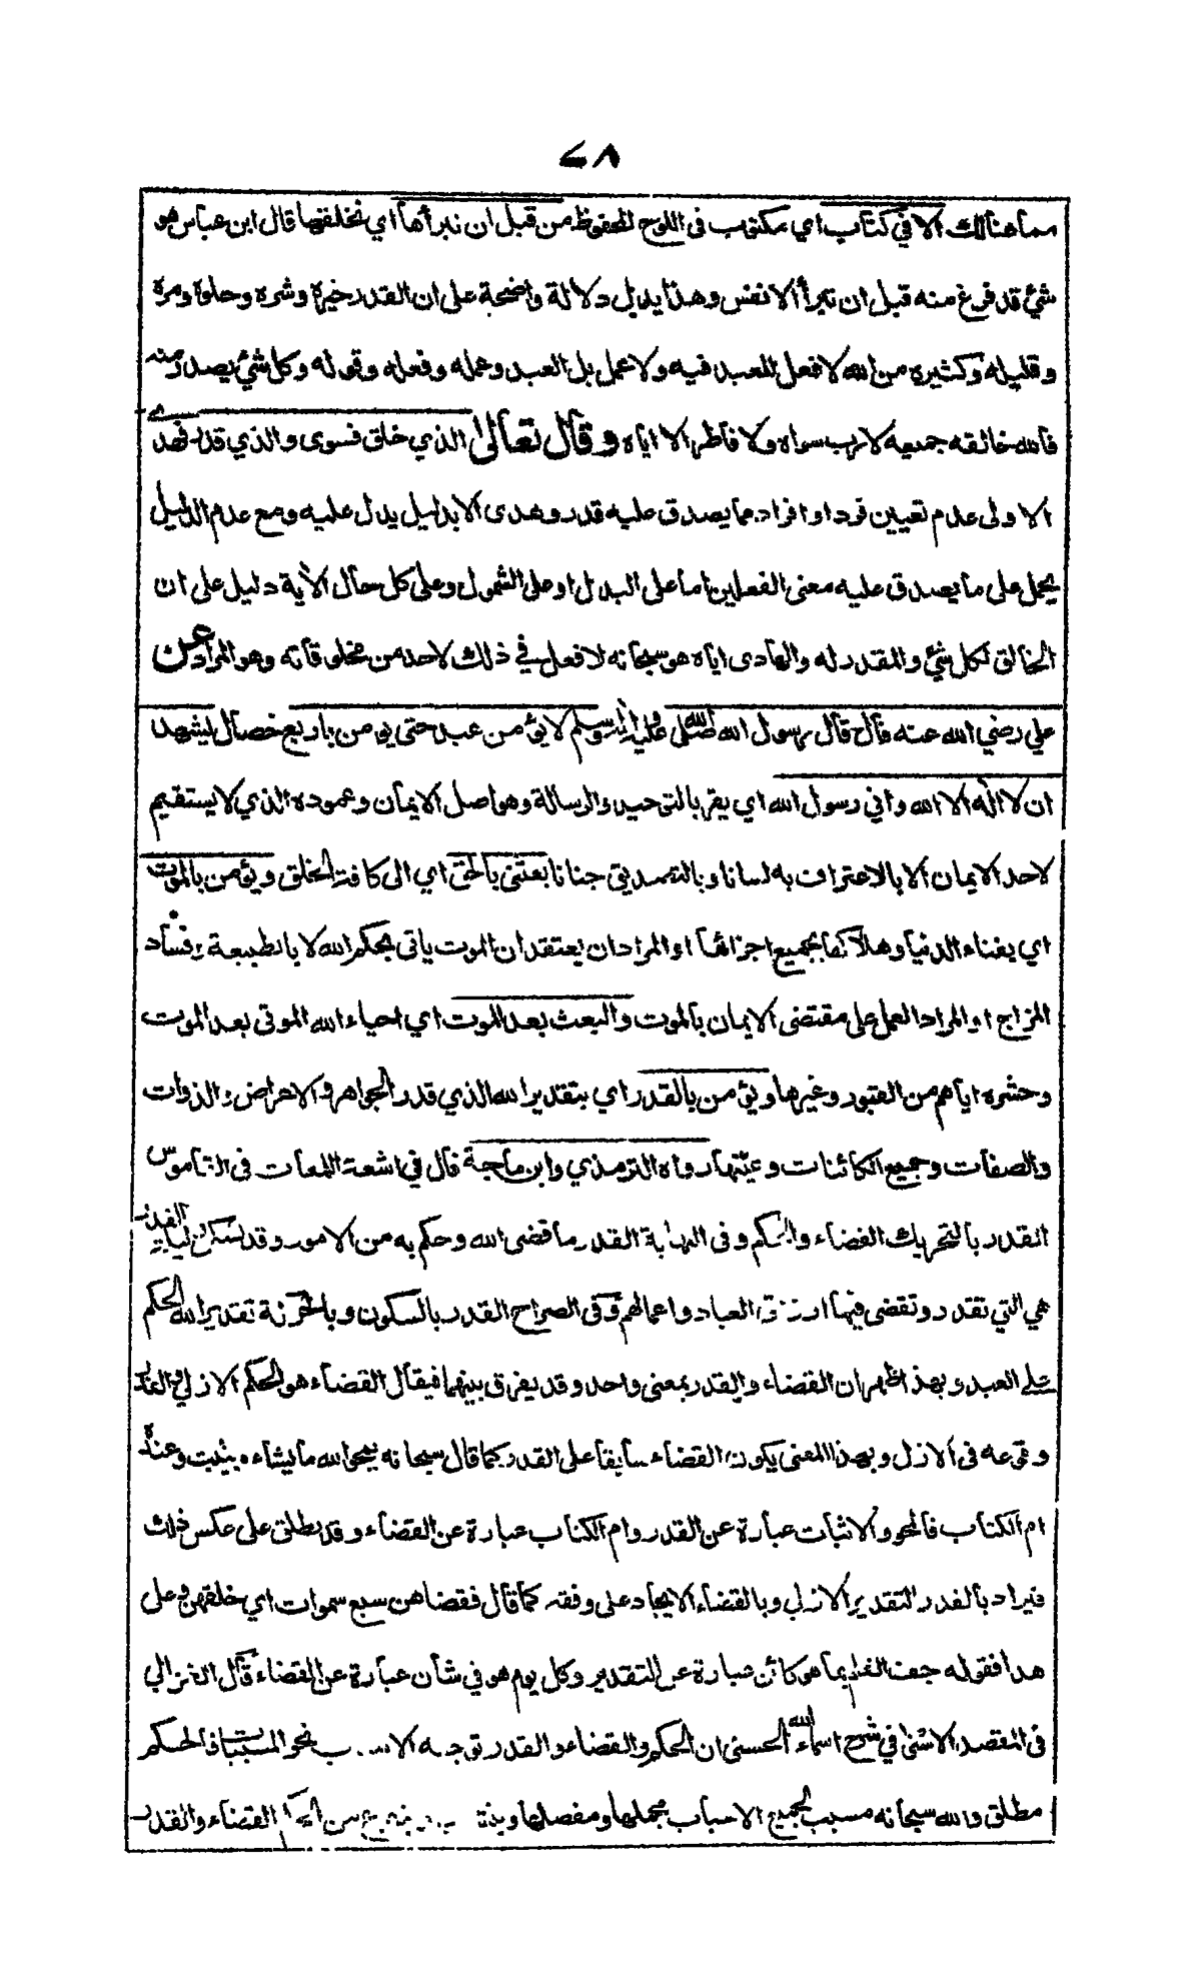 ٤٨
مما هنالك الا في كتاب اي مكتوب فى اللوح المحفوظ من قبل ان نبرأها اي نخلقها قال ابن عباس هو
شئ قد فرغ منه قبل ان تبرأ الانفس وهذا يدل دلالة واضحة على ان القدر خيره وشره وحلوه ومره
وقليله وكثيره من الله لا فعل للعبد فيه ولا عمل بل العبد وعمله وفعله وقوله وكل شئ يصدر منه
فالله خالقه جميعه لا رب سواه ولا فاطر الا اياه وقال تعالى الذي خلق فسوى والذي قدر فهدى
الاولى عدم تعيين فرد او افراد مما يصدق عليه قدر وهدى الا بدليل يدل عليه ومع عدم الدليل
يحمل على ما يصدق عليه معنى الفعلين اما على البدل او على الشمول وعلى كل حال الآية دليل على ان
الخالق لكل شئ والمقدر له والهادى اياه هو سبحانه لا فعل في ذلك لاحد من مخلوقاته وهو المراد عن
علي رضي الله عنه قال قال رسول الله صلى الله عليه واله وسلم لا يؤمن عبد حتى يؤمن باربع خصال يشهد
ان لا اله الا الله واني رسول الله اي يقر بالتوحيد والرسالة وهو اصل الايمان وعموده الذي لا يستقيم
لاحد الايمان الا بالاعتراف به لسانا وبالتصديق جنانا بعثني بالحق اي الى كافة الخلق ويؤمن بالموت
اي بفناء الدنيا وهلاكها بجميع اجزائها او المراد ان يعتقد ان الموت ياتى بحكم الله لا بالطبيعة وفساد
المزاج او المراد العمل على مقتضى الايمان بالموت والبعث بعد الموت اي احياء الله الموتى بعد الموت
وحشره اياهم من القبور وغيرها ويؤمن بالقدر اي بتقدير الله الذي قدر الجواهر والاعراض والذوات
والصفات وجميع الكائنات وعينها رواه الترمذي وابن ماجة قال في اشعة اللمعات فى القاموس
القدر بالتحريك القضاء والحكم وفى النهاية القدر ما قضى الله وحكم به من الامور وقد يسكن ليلة القدر
هي التي تقدر وتقضى فيها ارزاق العباد واعمالهم وفى الصراح القدر بالسكون وبالحركة تقدير الله الحكم
على العبد وبهذا ظهر ان القضاء والقدر بمعنى واحد وقد يفرق بينهما فيقال القضاء هو الحكم الازلي والقدر
وقوعه فى الازل وبهذا المعنى يكون القضاء سابقا على القدر كما قال سبحانه يمحو الله ما يشاء ويثبت وعنده
ام الكتاب فالمحو والاثبات عبارة عن القدر وام الكتاب عبارة عن القضاء وقد يطلق على عكس ذلك
فيراد بالقدر التقدير الازلي وبالقضاء الايجاد على وفقه كما قال فقضاهن سبع سموات اي خلقهن وعلى
هذا فقوله جف القلم بما هو كائن عبارة عن التقدير وكل يوم هو في شأن عبارة عن القضاء قال الغزالي
فى المقصد الاسنى في شرح اسماء الله الحسنى ان الحكم والقضاء والقدر توجه الاسباب نحو المسببات فالحكم
مطلق والله سبحانه مسبب لجميع الاسباب مجملها ومفصلها القضاء والقدر